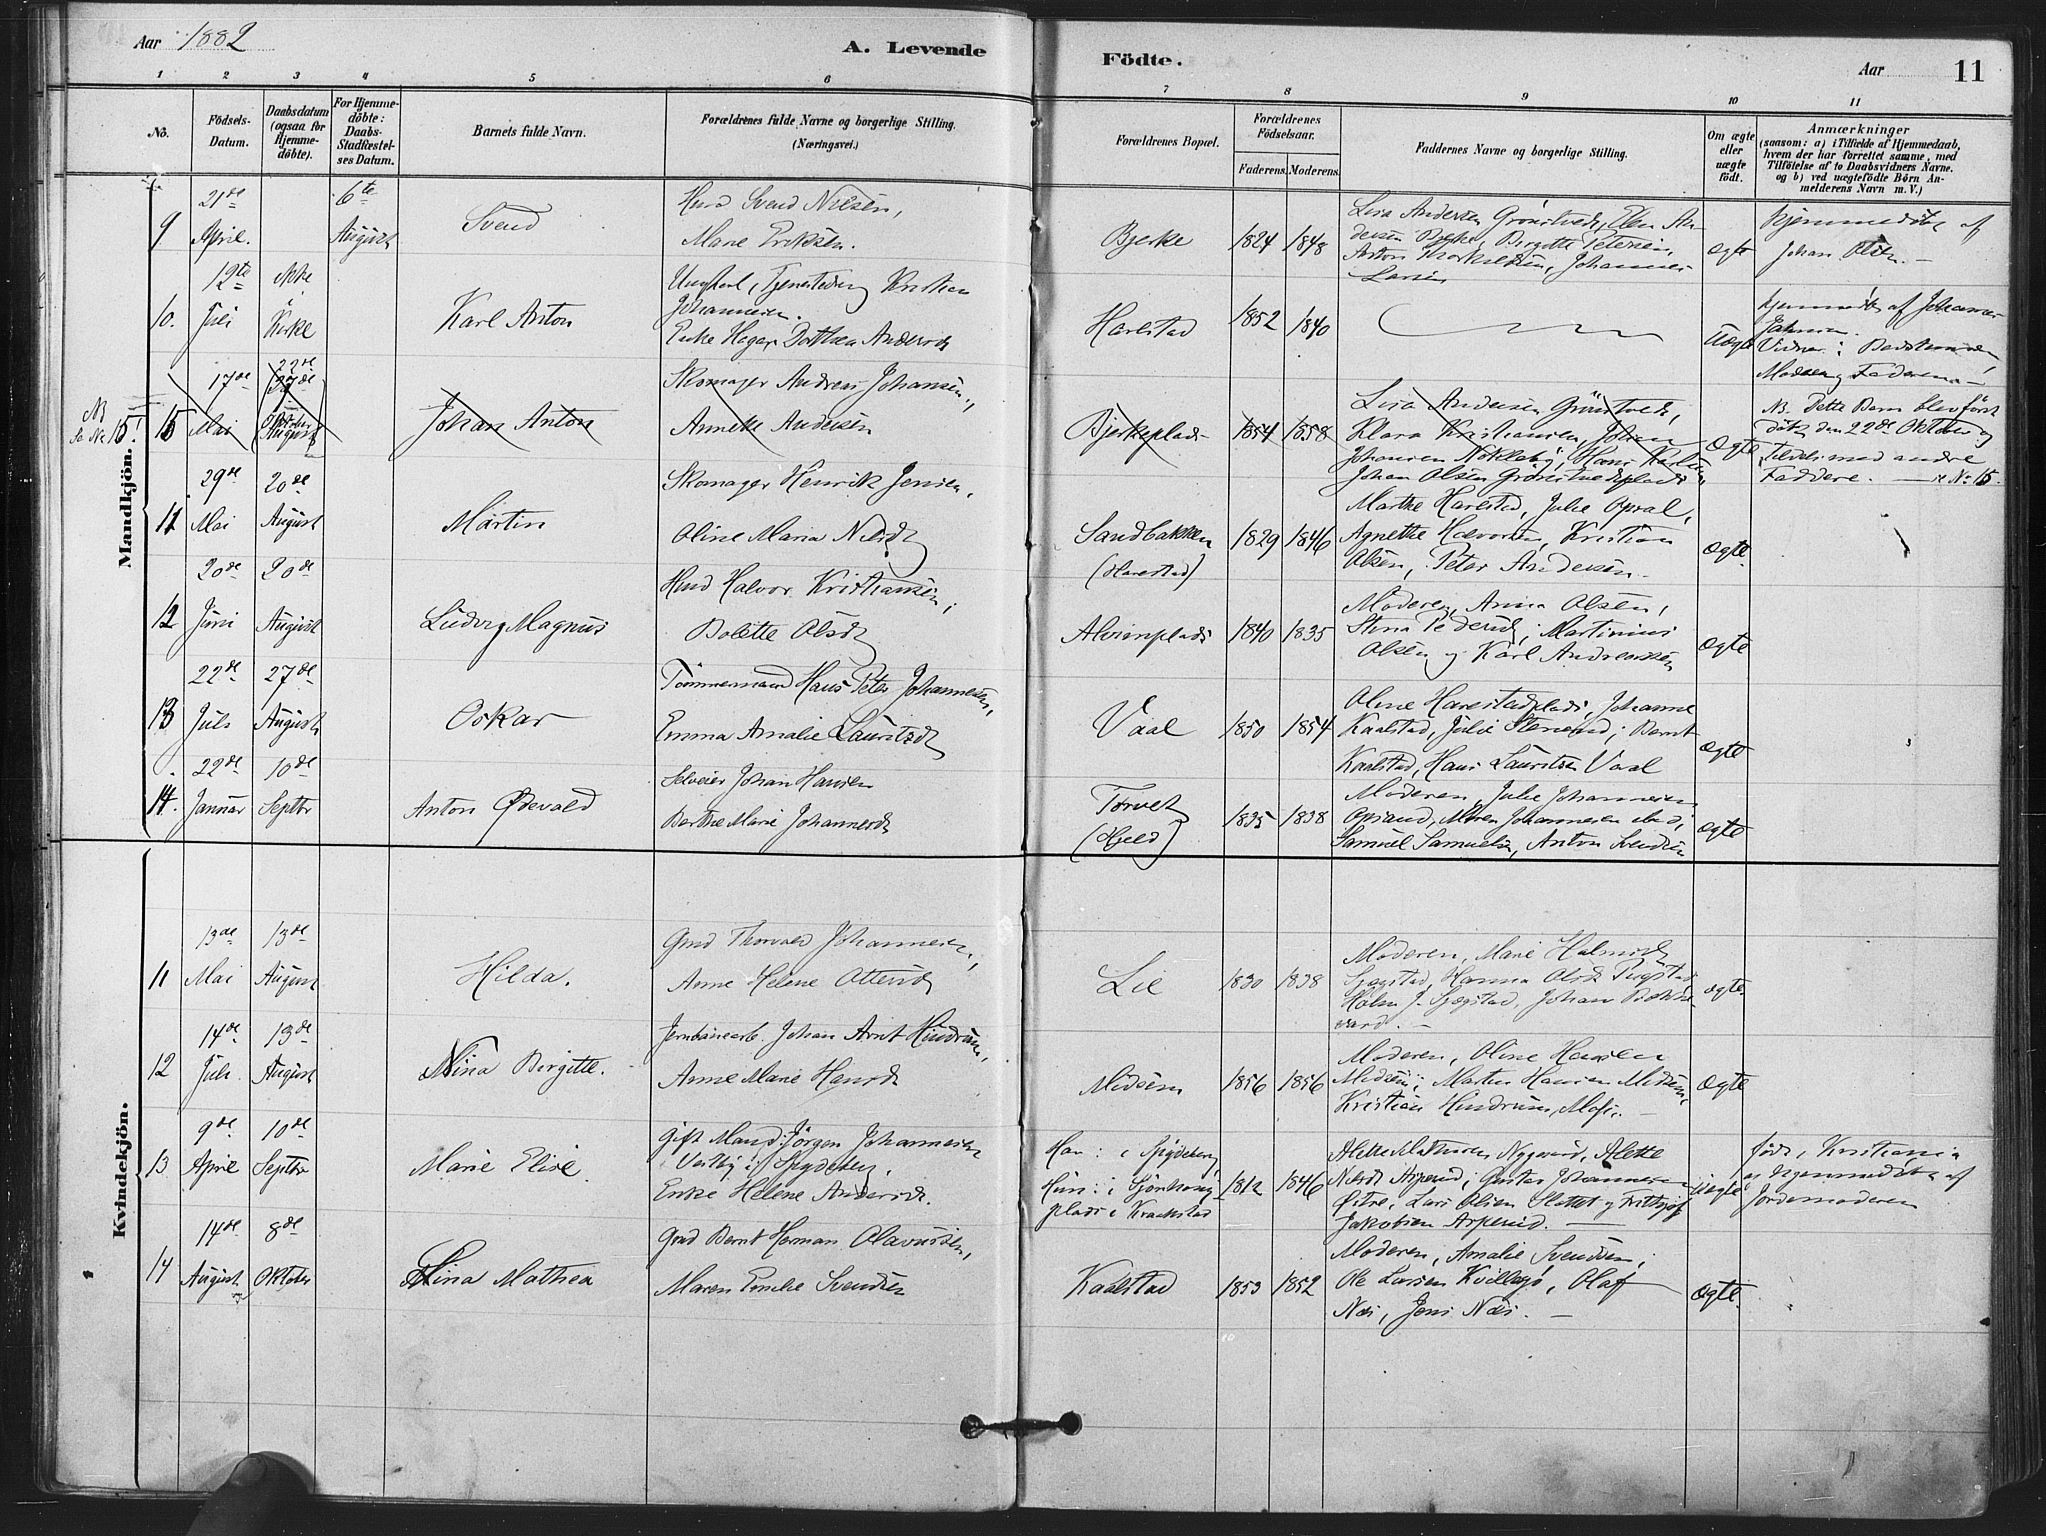 Aar 1882
A. Levende
Födte.
Aar
11
1 2 3 4 5 6 7 8 9 10 11
No.
Födsels-
Datum.
Daabsdatum
(ogsaa for
Hjemme-
döbte).
For Hjemme-
döbte:
Daabs-
Stadfæstel-
ses Datum.
Barnets fulde Navn.
Forældrenes fulde Navne og borgerlige Stilling.
(Næringsvei.)
Forældrenes Bopæl.
Forældrenes
Födselsaar.
Faderens. Moderens.
Faddernes Navne og borgerlige Stilling.
Om ægte
eller
uægte
födt.
Anmærkninger
(saasom: a) i Tilfælde af Hjemmedaab,
hvem der har forrettet samme, med
Tilföielse af to Daabsvidners Navne.
og b) ved uægtefödte Börn An-
melderens Navn m. V.)
Mandkjön.
9
21de
April.
6te
August
Svend
Svend Nilsen,
Marie Eriksen.
Bjerke
1824 1848
Lisa Andersen Grönstvedt, Ellen An-
dersen Bjerke, Birgitte Petersen,
Anton Thorkildsen, Johannes
Larsen
Ægte
Hjemmedöbt af
Johan Olsen.
10.
12te
Juli
ikke
i
Kirke
Karl Anton
Ungkarl, Kristian
Johannesen.
Enke Hagar Dorthea Andersd
Harestad
1852 1840
Uægte
hjemmedöbt af Johannes
Vidner:
Moderen og Faderen
NB
Se No 15!
15
17de
Mai
22de
27de
Oktober
August
Johan Anton
Skomager Andreas Johansen,
Annette Andersen
Bjerkeplads
1854 1858
Lisa Andersen Grönstvedt,
Klara Kristiansen, Johan
Johansen Nökleby, Hans Karlsen,
Johan Olsen Grönstvedtplads
Ægte
NB. Dette Barn blev först
döbt den 22de Oktober og
tildels med andre
Faddere. — se No 15.
11
29de
Mai
20de
August
Martin
Skomager Henrik Jensen,
Oline Maria Nilsd
Sandbakken
(Harestad)
1829 1846
Marthe Harestad, Julie Opsal,
Agnethe Halvorsen, Kristian
Olsen, Peter Andersen.
Ægte.
12
20de
Juni
20de
August
Ludvig Magnus
Halvor Kristiansen,
Bolette Olsd
Alvimplads
1840 1835
Moderen, Anna Olsen,
Stina Pedersd, Martinius
Olsen og Karl Andreassen
Ægte
13
22de
Juli
27de
August
Oskar
Tömmermand Hans Peter Johannesen,
Emma Amalie Lauritzd
Vaal
1850 1854
Oline Harestadplads, Johanne
Kaalstad, Julie Stenerud, Bernt
Kaalstad, Hans Lauritsen Vaal
Ægte
14.
22de
Januar
10de
Septbr
Anton Ødevald
Selveier Johan Hansen
Berthe Marie Johannesd
Torvet
(Hjeld)
1835 1838
Moderen, Julie Johannesen
Opsand, Maren Johannesen ibid,
Samuel Samuelsen, Anton Svendsen
Ægte
Kvindekjön.
11
13de
Mai
13de
August
Hilda.
Grmd Thorvald Johannesen,
Anne Helene Ottersd
Lie
1830 1838
Moderen, Marie Holmsd
Sjægstad, Hanna Olsd
Holm J. Sjægstad, Johan
Ægte
12
14de
Juli
13de
August
Nina Birgitte.
Jernbanearb. Johan Arnt Hindrum,
Anne Marie Hansd
Midsem
1856 1856
Moderen, Oline Hansen
Midsem, Martin Hansen Midsem,
Kristian Hindrum, Moss.
Ægte
13
9de
April
10de
Septbr
Marie Elise
Gift Mand Jörgen Johannesen
Vestby i Spydeberg,
Enke Helene Andersd.
Han: i Spydeberg
Hun: i
plads i Kraakstad
1812 1846
Alette Mathisen Nygaard, Alette
Gustav Johannesen
Östre, Lars Olsen Slottet og Frithjof
Jakobsen
Uægte
födt i Kristiania
og hjemmedöbt af
Jordemoderen
14
14de
August
8de
Oktober
Lina Mathea
Grmd Bernt Herman Olavussen,
Maren Emilie Svendsen
Kaalstad
1853 1852
Moderen, Amalie Svendsen,
Ole Larsen Kvillesjö, Olaf
Næs, Jens Næs.
Ægte.